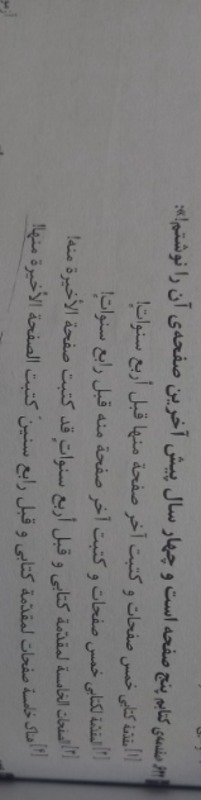 «مقدمه‌ی کتابم پنج صفحه است و چهار سال پیش آخرین صفحه‌ی آن را نوشتم!»:
[۱] مقدّمة كتابي خمس صفحات و كتبت آخر صفحة منها قبل أربع سنوات!
[۲] المقدّمة لكتابي خمس صفحات و كتبت آخر صفحة منه قبل رابع سنوات!
[۳] الصفحات الخامسة لمقدّمة كتابي و قبل أربع سنواتٍ قد كتبت صفحة الأخيرة منه!
[۴] هناك خامسة صفحات لمقدّمة كتابي و قبل رابع سنينَ كتبت الصفحة الأخيرة منها!